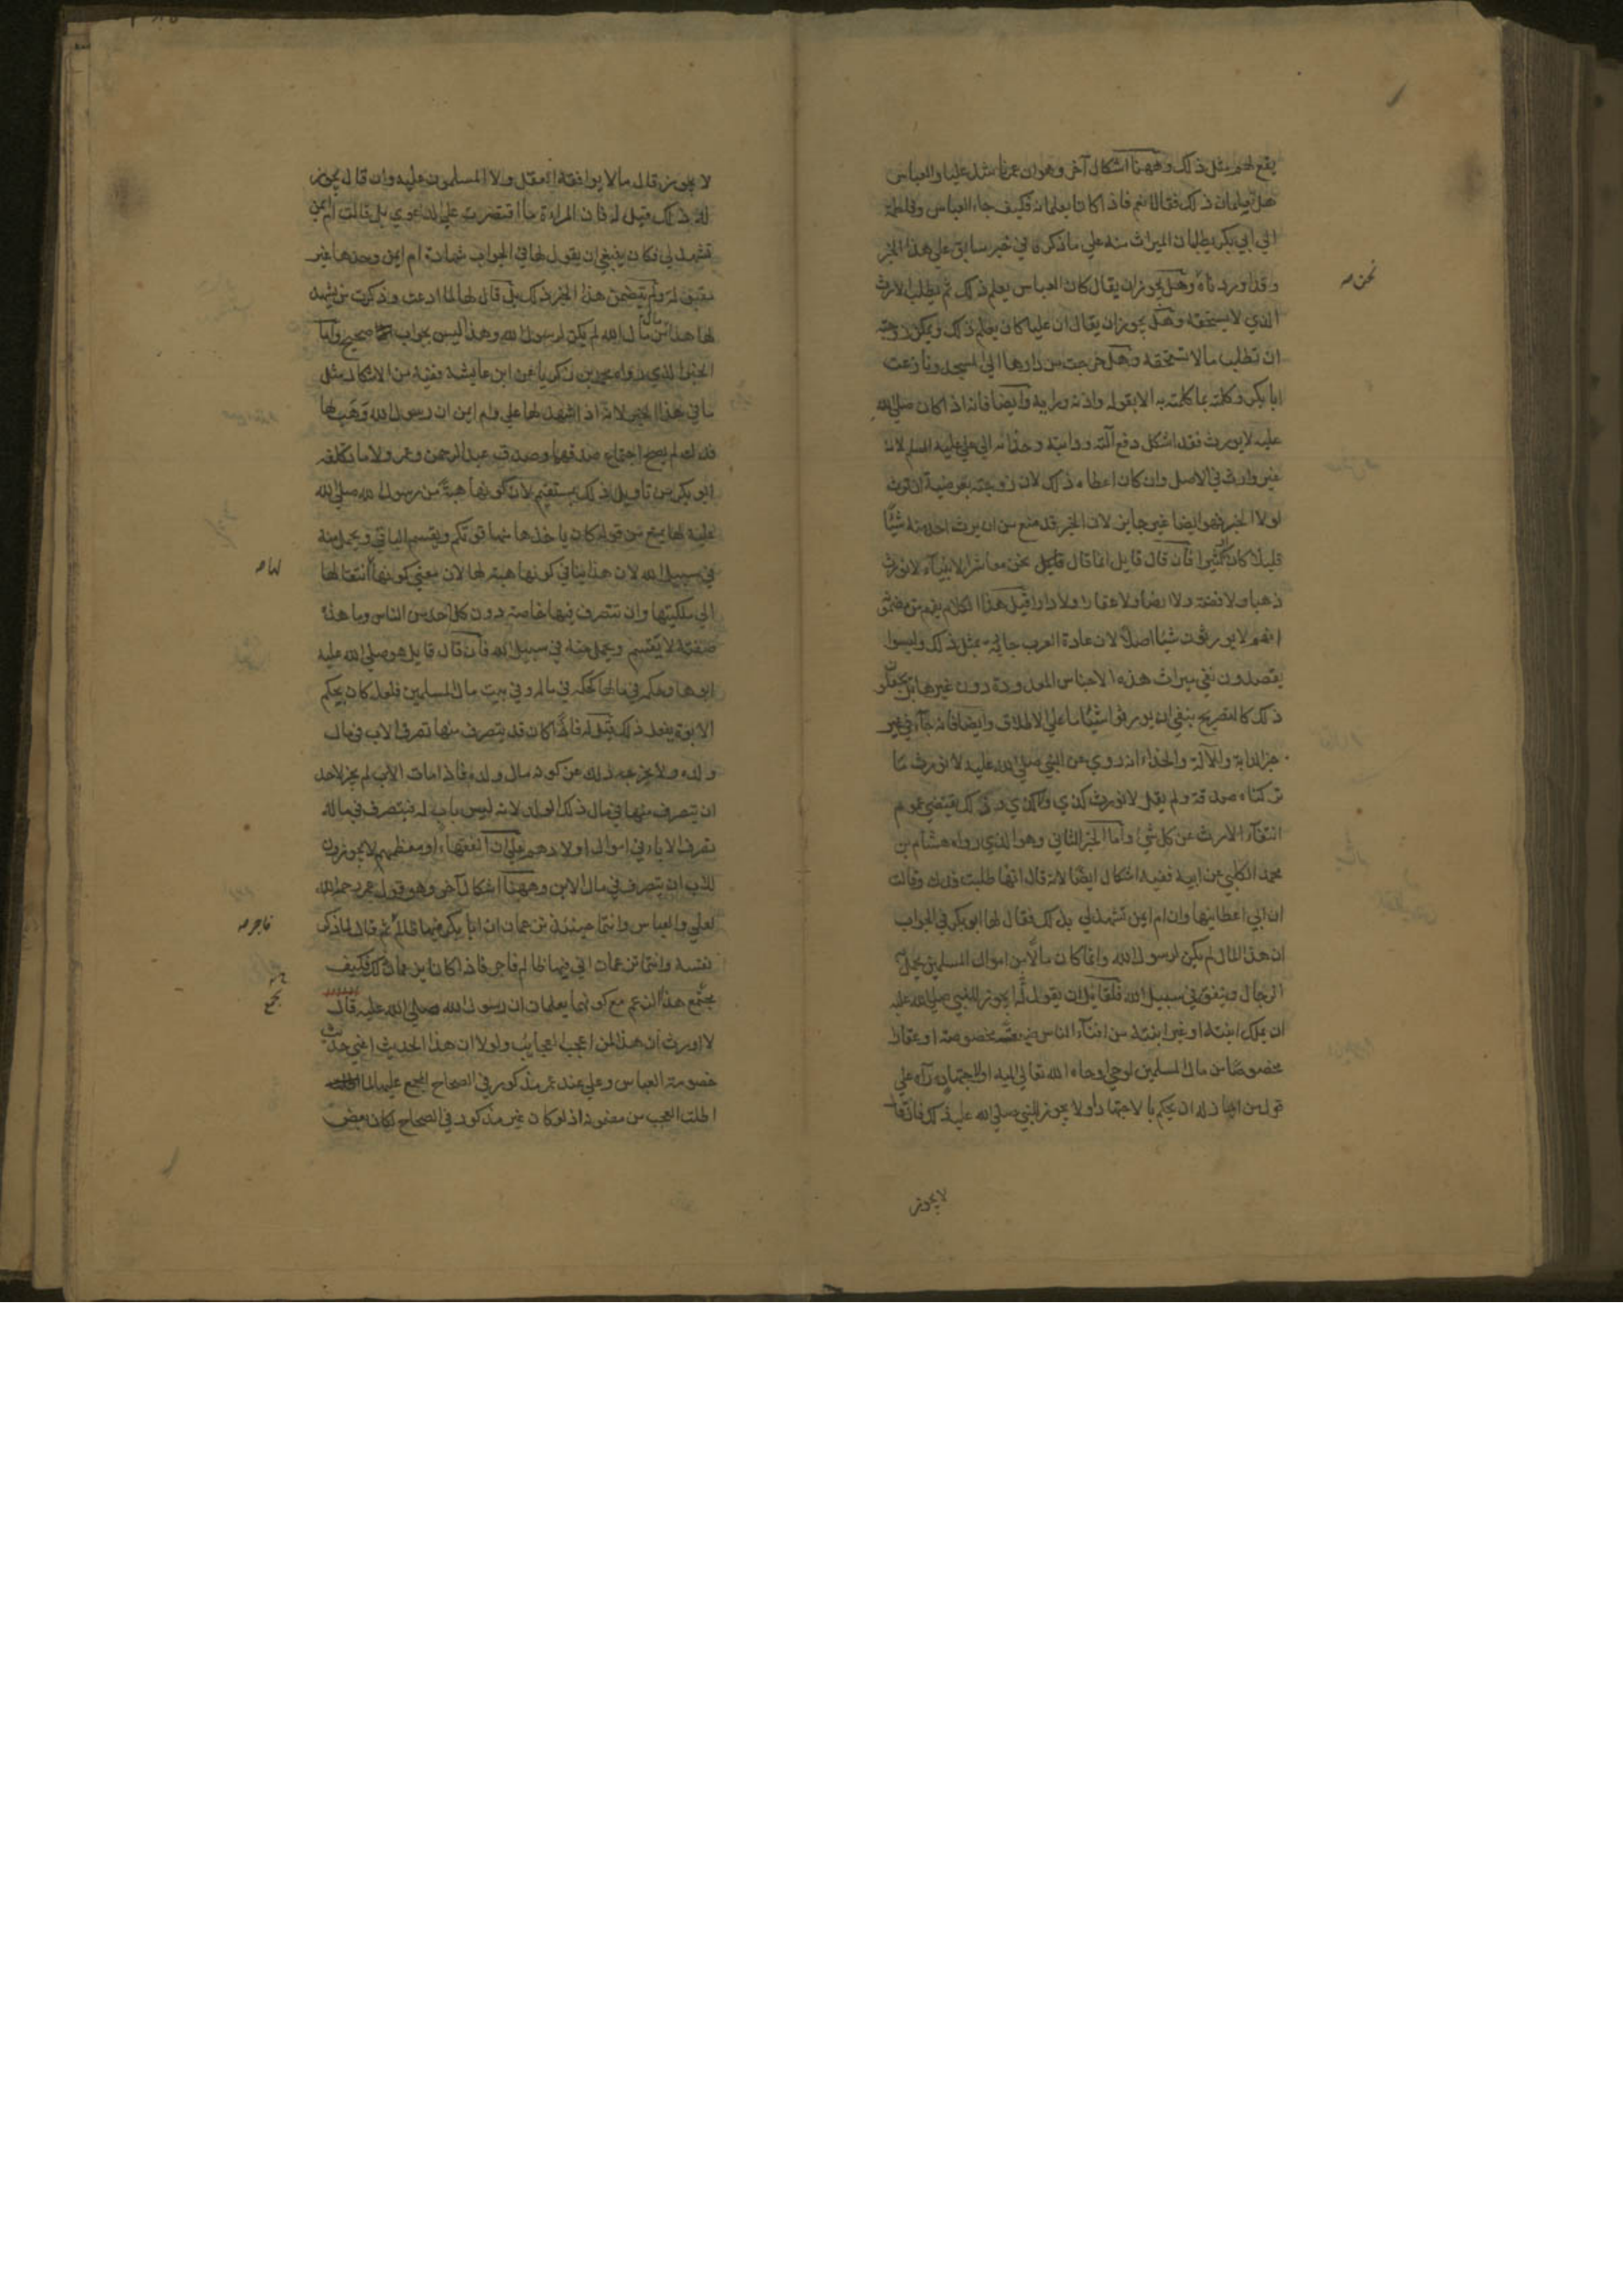 يقع لهم مثل ذلك وههنا اشكال آخر وهو ان عمر ناشد عليا والعباس
هل تعلمان ذلك فقالا نعم فاذا كانا يعلمانه فكيف جاء العباس وفاطمة
الى ابي بكر يطلبان الميراث منه علي ما ذكره في خبر سابق علي هذا الخبر
وقد اوردناه وهل يجوز ان يقال كان العباس يعلم ذلك ثم يطلب الارث
الذي لا يستحقه وهل يجوز ان يقال ان عليا كان يعلم ذلك ويمكن زوجته
ان تطلب ما لا تستحقه وهل خرجت من دارها الي المسجد ونازعت
ابا بكر وكلمته بما كلمته به الا بقوله واذنه ورايه وايضا فانه اذا كان صلي الله
عليه لا يورث فقد اشكل دفع آلته ودابته وحذائه الي علي عليه السلم لانه
غير وارث في الاصل وان كان اعطاه ذلك لان زوجته بعرضية ان ترث
لولا الخبر فهو ايضا غير جايز لان الخبر قد منع من ان يرث احد منه شيئا
قليلا كان او كثيرا فان قال قايل انما قال نحن معاشر الانبياء لا نورث
ذهبا ولا فضة ولا ارضا ولا عقارا ولا دارا قيل هذا الكلام يفهم من مضمونه
انهم لا يورثون شيئا اصلا لان عادة العرب جارية بمثل ذلك وليسوا
يقصدون نفي ميراث هذه الاجناس المعدودة دون غيرها بل يجعلون
ذلك كالتصريح بنفي ان يورثوا شيئا ما علي الاطلاق وايضا فانه جاء في غير
خبر الدابة والآلة والحذاء انه روي عن النبي صلي الله عليه لا نورث ما
تركناه صدقة ولم يقل لا نورث كذي وكذي وذلك يقتضي عموم
انتفاء الارث عن كل شي واما الخبر الثاني وهو الذي رواه هشام بن
محمد الكلبي عن ابيه ففيه اشكال ايضا لانه قال انها طلبت فدك وقالت
ان ابي اعطانيها وان ام ايمن تشهد لي بذلك فقال لها ابو بكر في الجواب
ان هذا المال لم يكن لرسول الله وانما كان مالا من اموال المسلمين يحمل به
الرجال وينفق في سبيل الله فلقايل ان يقول له ايجوز للنبي صلي الله عليه
ان يملك ابنته او غير ابنته من افناء الناس ضيعة مخصوصة او عقارا
مخصوصا من مال المسلمين لوحي اوحاه الله تعالي اليه او لاجتهاد رآه علي
قول من اجاز له ان يحكم بالاجتهاد او لا يجوز للنبي صلي الله عليه ذلك فان قال
لا يجوز
نحن صه
لا يجوز قال ما لا يوافقه العقل ولا المسلمون عليه وان قال يجوز
له ذلك قيل له فان المراة ما اقتصرت علي الدعوي بل قالت ام ايمن
تشهد لي فكان ينبغي ان يقول لها في الجواب شهادة ام ايمن وحدها غير
مقبولة ولم يتضمن هذا الخبر ذلك بل قال لها لما ادعت وذكرت من يشهد
لها هذا من مال الله لم يكن لرسول الله وهذا ليس بجواب صحيح واما
الخبر الذي رواه محمد بن زكريا عن ابن عايشة ففيه من الاشكال مثل
ما في هذا الخبر لانه اذا شهد لها علي وام ايمن ان رسول الله وهب لها
فدك لم يصح اجتماع صدقها وصدق عبد الرحمن وعمر ولا ما تكلفه
ابو بكر من تاويل ذلك بمستقيم لان كونها هبة من رسول الله صلي الله
عليه لها يمنع من قوله كان ياخذ منها قوتكم ويقسم الباقي ويحمل منه
في سبيل الله لان هذا ينافي كونها هبة لها لان معني كونها لها انتقالها
الي ملكيتها وان تتصرف فيها خاصة دون كل احد من الناس وما هذه
صفته لا يقسم ويحمل منه في سبيل الله فان قال قايل هو صلي الله عليه
ابوها وحكمه في مالها كحكمه في ماله وفي بيت مال المسلمين فلعله كان بحكم
الابوة يفعل ذلك قيل له فاذا كان قد يتصرف منها تصرف الاب في مال
ولده ولا يخرجه ذلك عن كونه مال ولده فاذا مات الاب لم يجز لاحد
ان يتصرف منها في مال ذلك الولد لانه ليس باب له فيتصرف في ماله
تصرف الاباء في اموال اولادهم علي ان الفقهاء او معظمهم لا يجوزون
للاب ان يتصرف في مال الابن وههنا اشكال آخر وهو قول عمر رحمه الله
لعلي والعباس وانتما حينئذ تزعمان ان ابا بكر فيها ظالم ثم قال لما ذكر
نفسه وانتما تزعمان اني فيها ظالم فاجر فاذا كانا يزعمان ذلك فكيف
يجتمع هذا الزعم مع كونهما يعلمان ان رسول الله صلي الله عليه قال
لا اورث ان هذا لمن اعجب العجايب ولولا ان هذا الحديث اعني حديث
خصومة العباس وعلي عند عمر مذكور في الصحاح المجمع عليها لما
اطلت العجب من مضمونه اذ لو كان غير مذكور في الصحاح لكان بعض
لها صه
فاجر صه
يجتمع